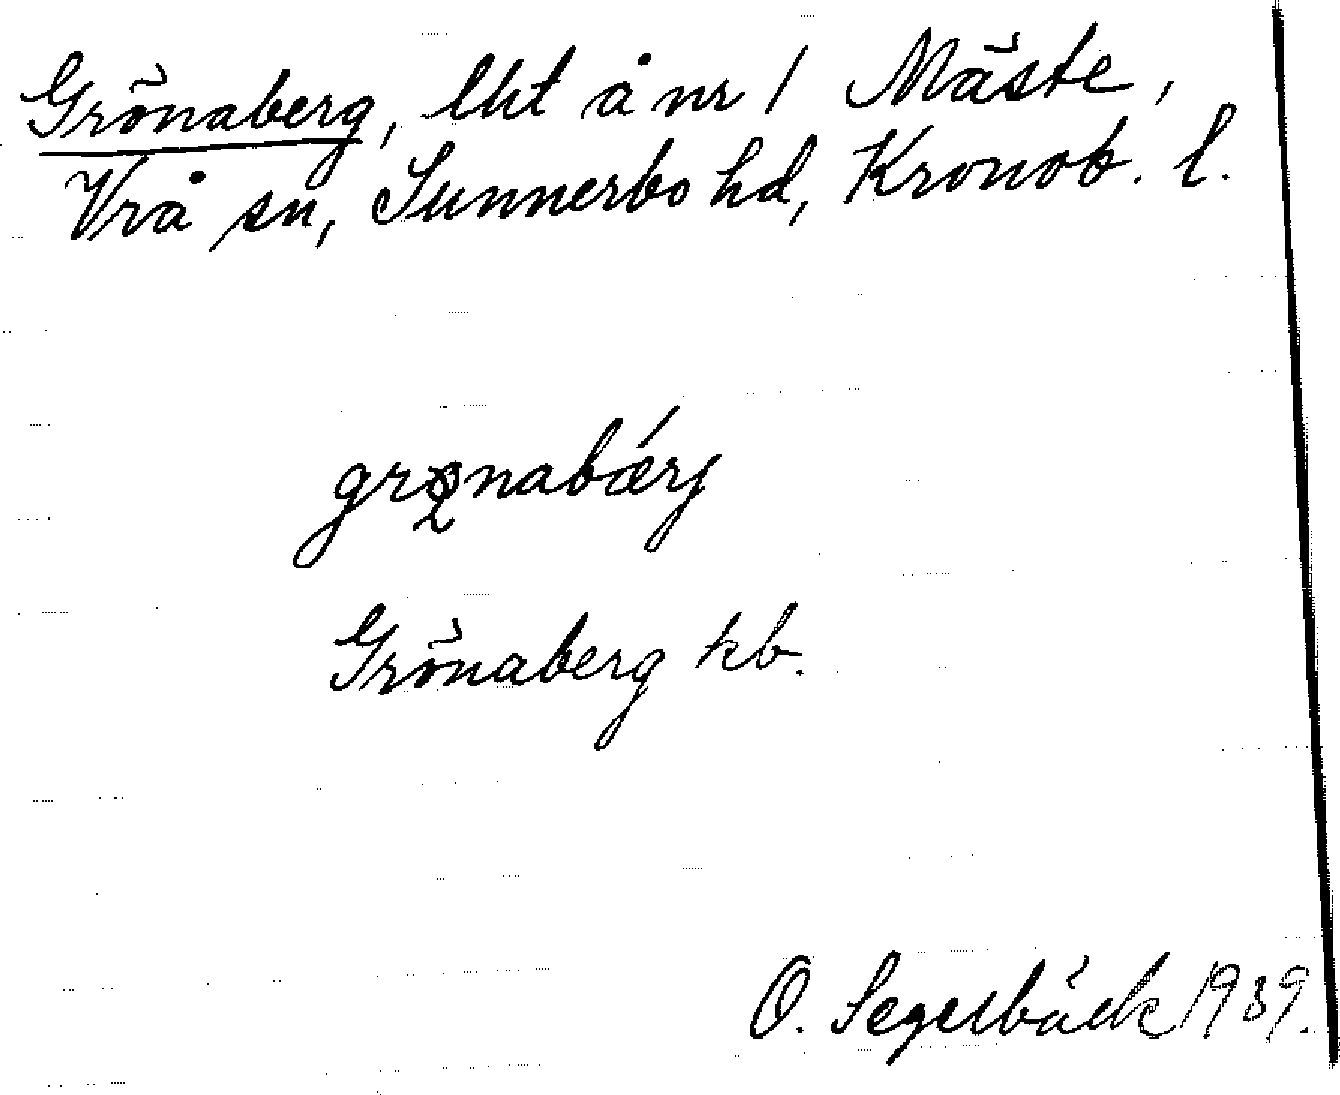 Grönaberg, lht å nr 1 Mäste,
Vrå sn, Sunnerbo hd, Kronob. l.
grønabǽrj
Grönaberg kb.
O. Segerbäck 1939.